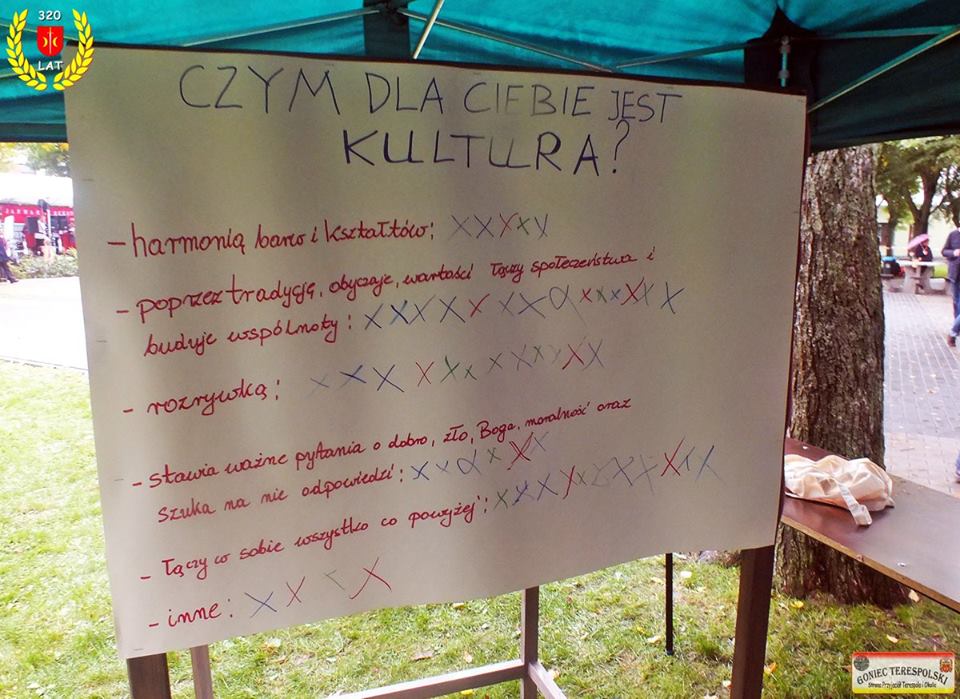 320
LAT
CZYM DLA CIEBIE JEST
KULTURA?
- harmonią barw i kształtów;
- poprzez tradycję, obyczaje, wartości łączy społeczeństwa i
buduje wspólnoty:
- rozrywką;
- stawia ważne pytania o dobro, zło, Boga, moralność oraz
szuka na nie odpowiedzi:
- łączy w sobie wszystko co powyżej;
- inne:
GONIEC TERESPOLSKI
Strona Przyjaciół Terespola i Okolic